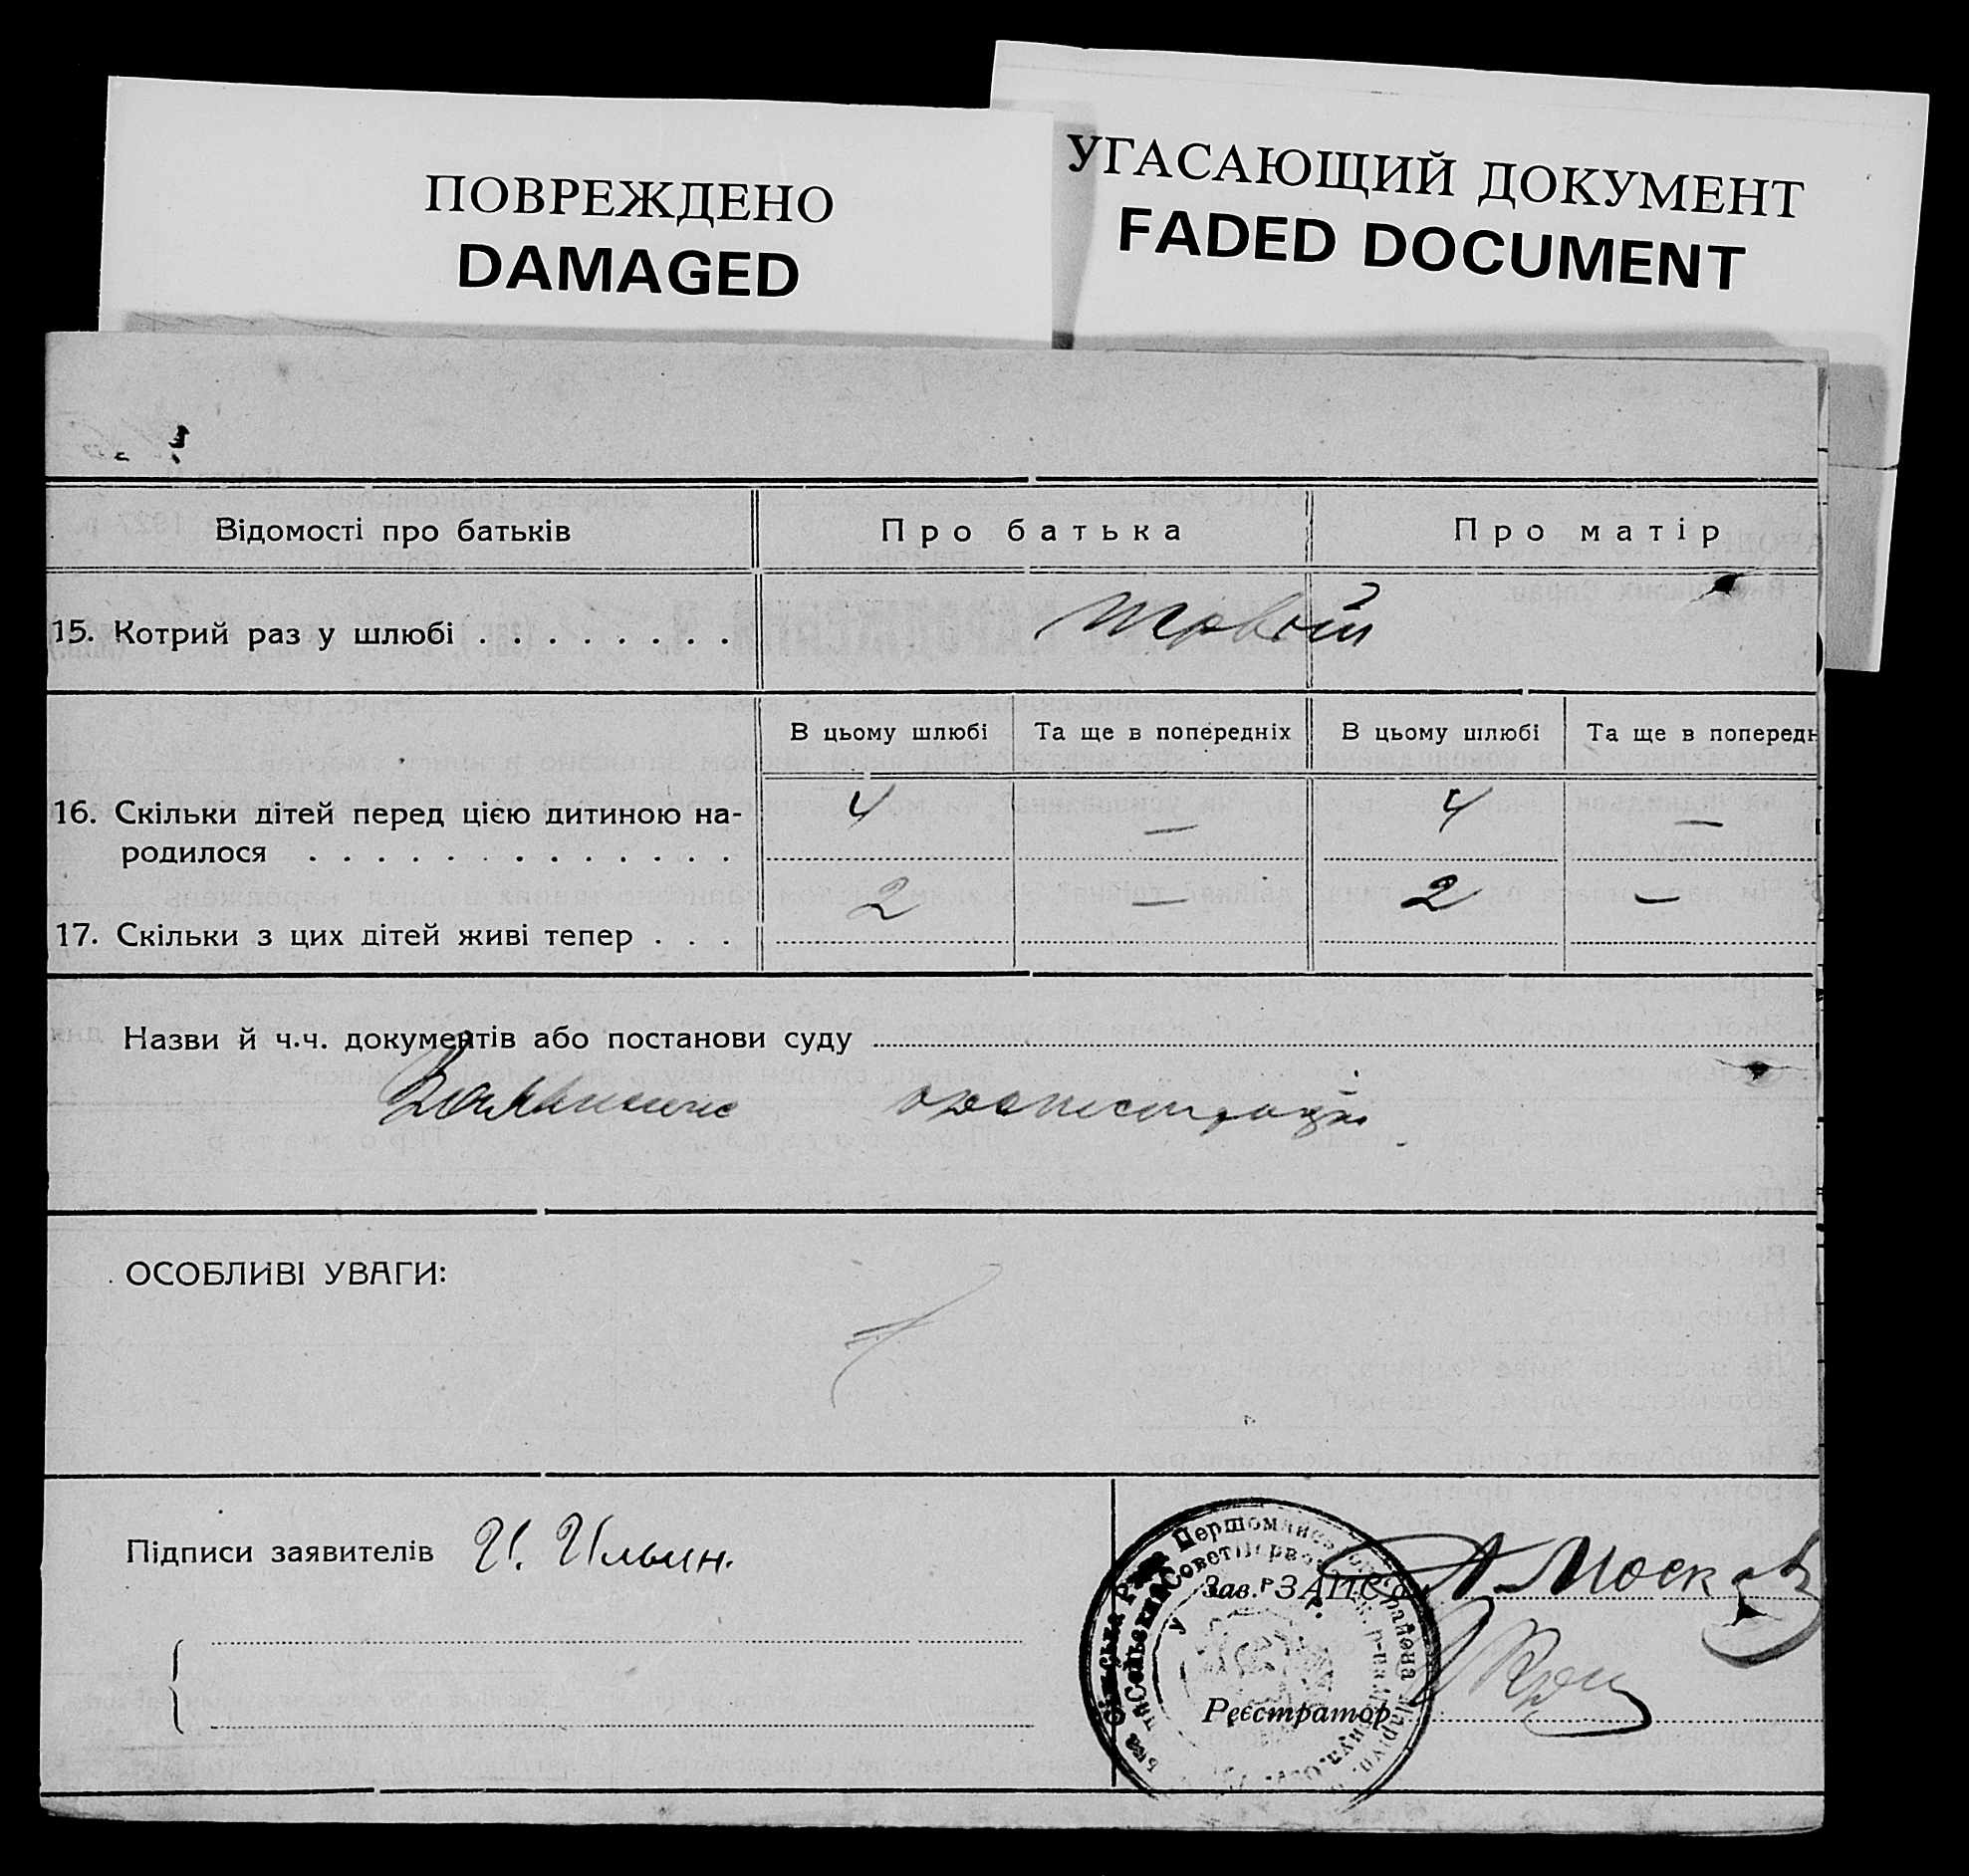 ПОВРЕЖДЕНО
DAMAGED
УГАСАЮЩИЙ ДОКУМЕНТ
FADED DOCUMENT
Відомості про батьків
Про батька
Про матір
15. Котрий раз у шлюбі . . . . . . . .
В цьому шлюбі
Та ще в попередніх
В цьому шлюбі
Та ще в попередн
16. Скільки дітей перед цією дитиною на-
родилося . . . . . . . . . . . . .
4 — 4 —
17. Скільки з цих дітей живі тепер . . .
2 — 2 —
Назви й ч.ч. документів або постанови суду
ОСОБЛИВІ УВАГИ:
Підписи заявителів И. Ильин.
Зав. ЗАГС'ом
Реєстратор